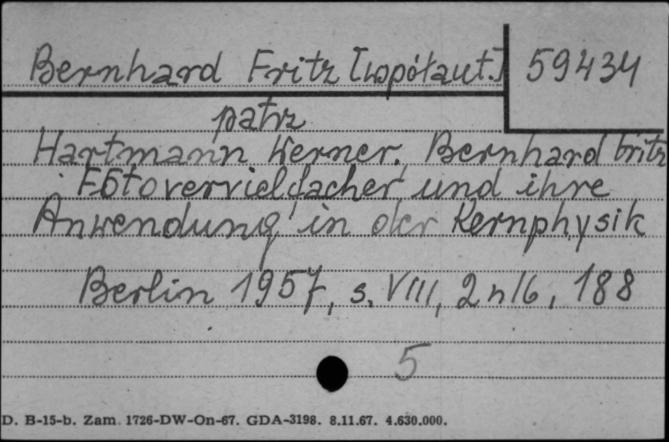 Bernhard Fritz [współaut.] 59434
patrz
Hartmann Werner, Bernhard Fritz
Fotovervielfacher und ihre
Anwendung in der Kernphysik
Berlin 1957, s. VIII, 2 nlb, 188
5
D. B-15-b. Zam. 1726-DW-On-67. GDA-3198. 8.11.67. 4.630.000.